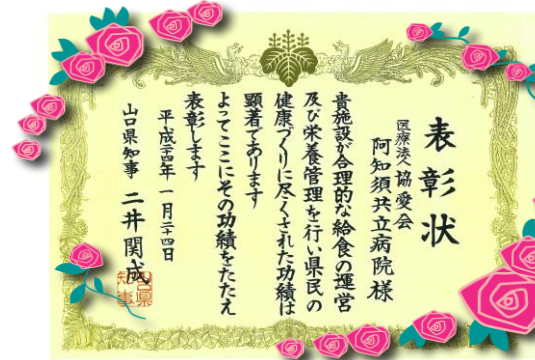 表彰状
医療法人協愛会
阿知須共立病院様
貴施設が合理的な給食の運営
及び栄養管理を行い県民の
健康づくりに尽くされた功績は
顕著であります
よってここにその功績をたたえ
表彰します
平成二十四年一月二十四日
山口県知事 二井関成
山口県知事